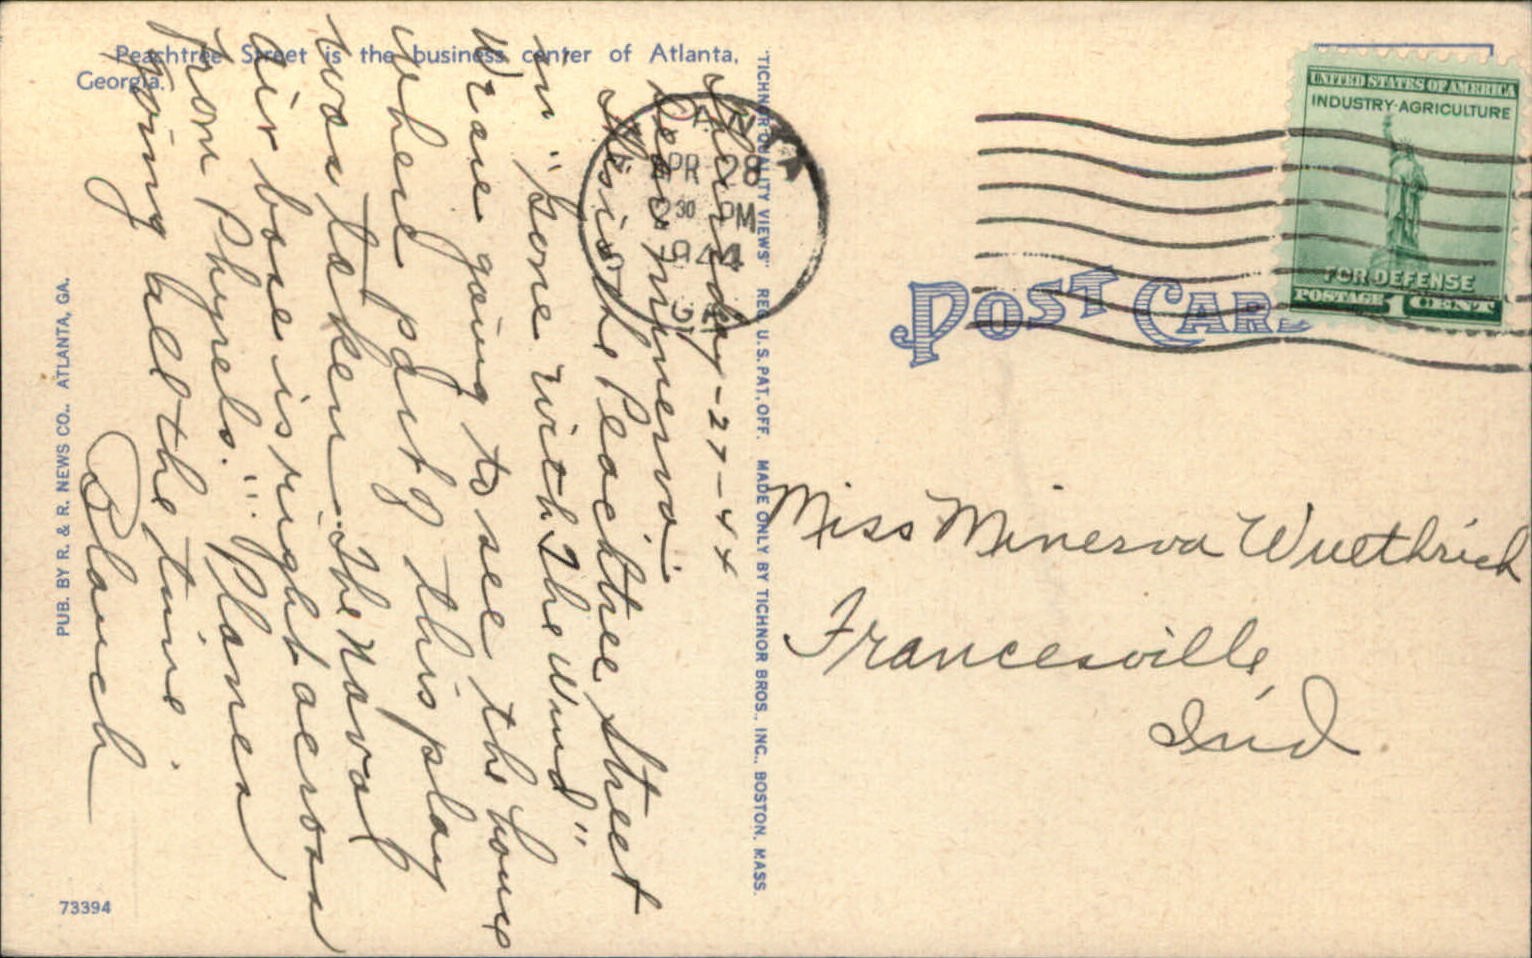 Peachtree Street is the business center of Atlanta,
Georgia.
Thursday - 27 - 44
Dear Minerva:
This is the Peachtree Street
in "Gone With The Wind"
We are going to see the house
where part of this play
was taken. The Naval
Air base is right across
from Phynels. Planes
going all the time.
Blanch
PUB. BY R. & R. NEWS CO., ATLANTA, GA.
73394
"TICHNOR QUALITY VIEWS" REG. U.S. PAT. OFF. MADE ONLY BY TICHNOR BROS., INC., BOSTON, MASS.
APR 28
2 30 PM
1944
GA
UNITED STATES OF AMERICA
INDUSTRY·AGRICULTURE
FOR DEFENSE
POSTAGE 1 CENT
POST CARD
Miss Minerva Wuethrich
Francesville,
Ind.